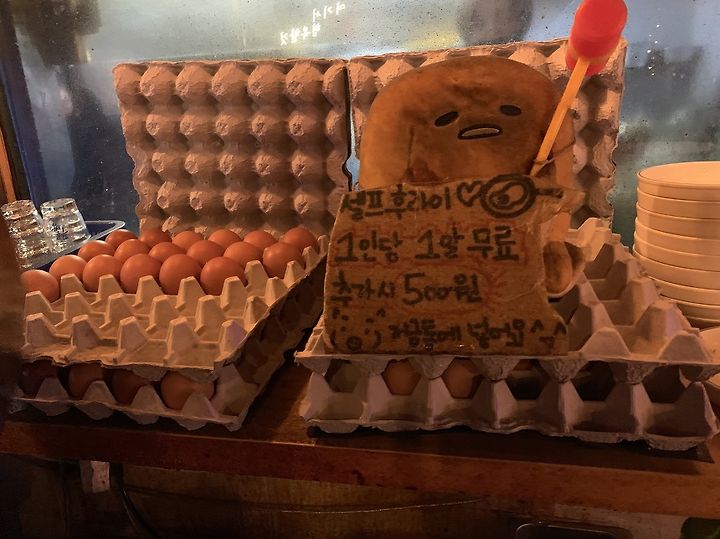 셀프 후라이
1인당 1알 무료
추가시 500원
저금통에 넣어요^^